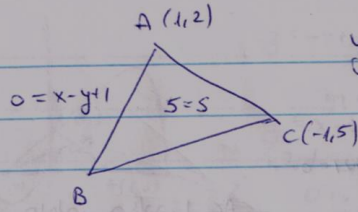 A (1,2)
0 = x-y+1
5=5
C(-1,5)
B